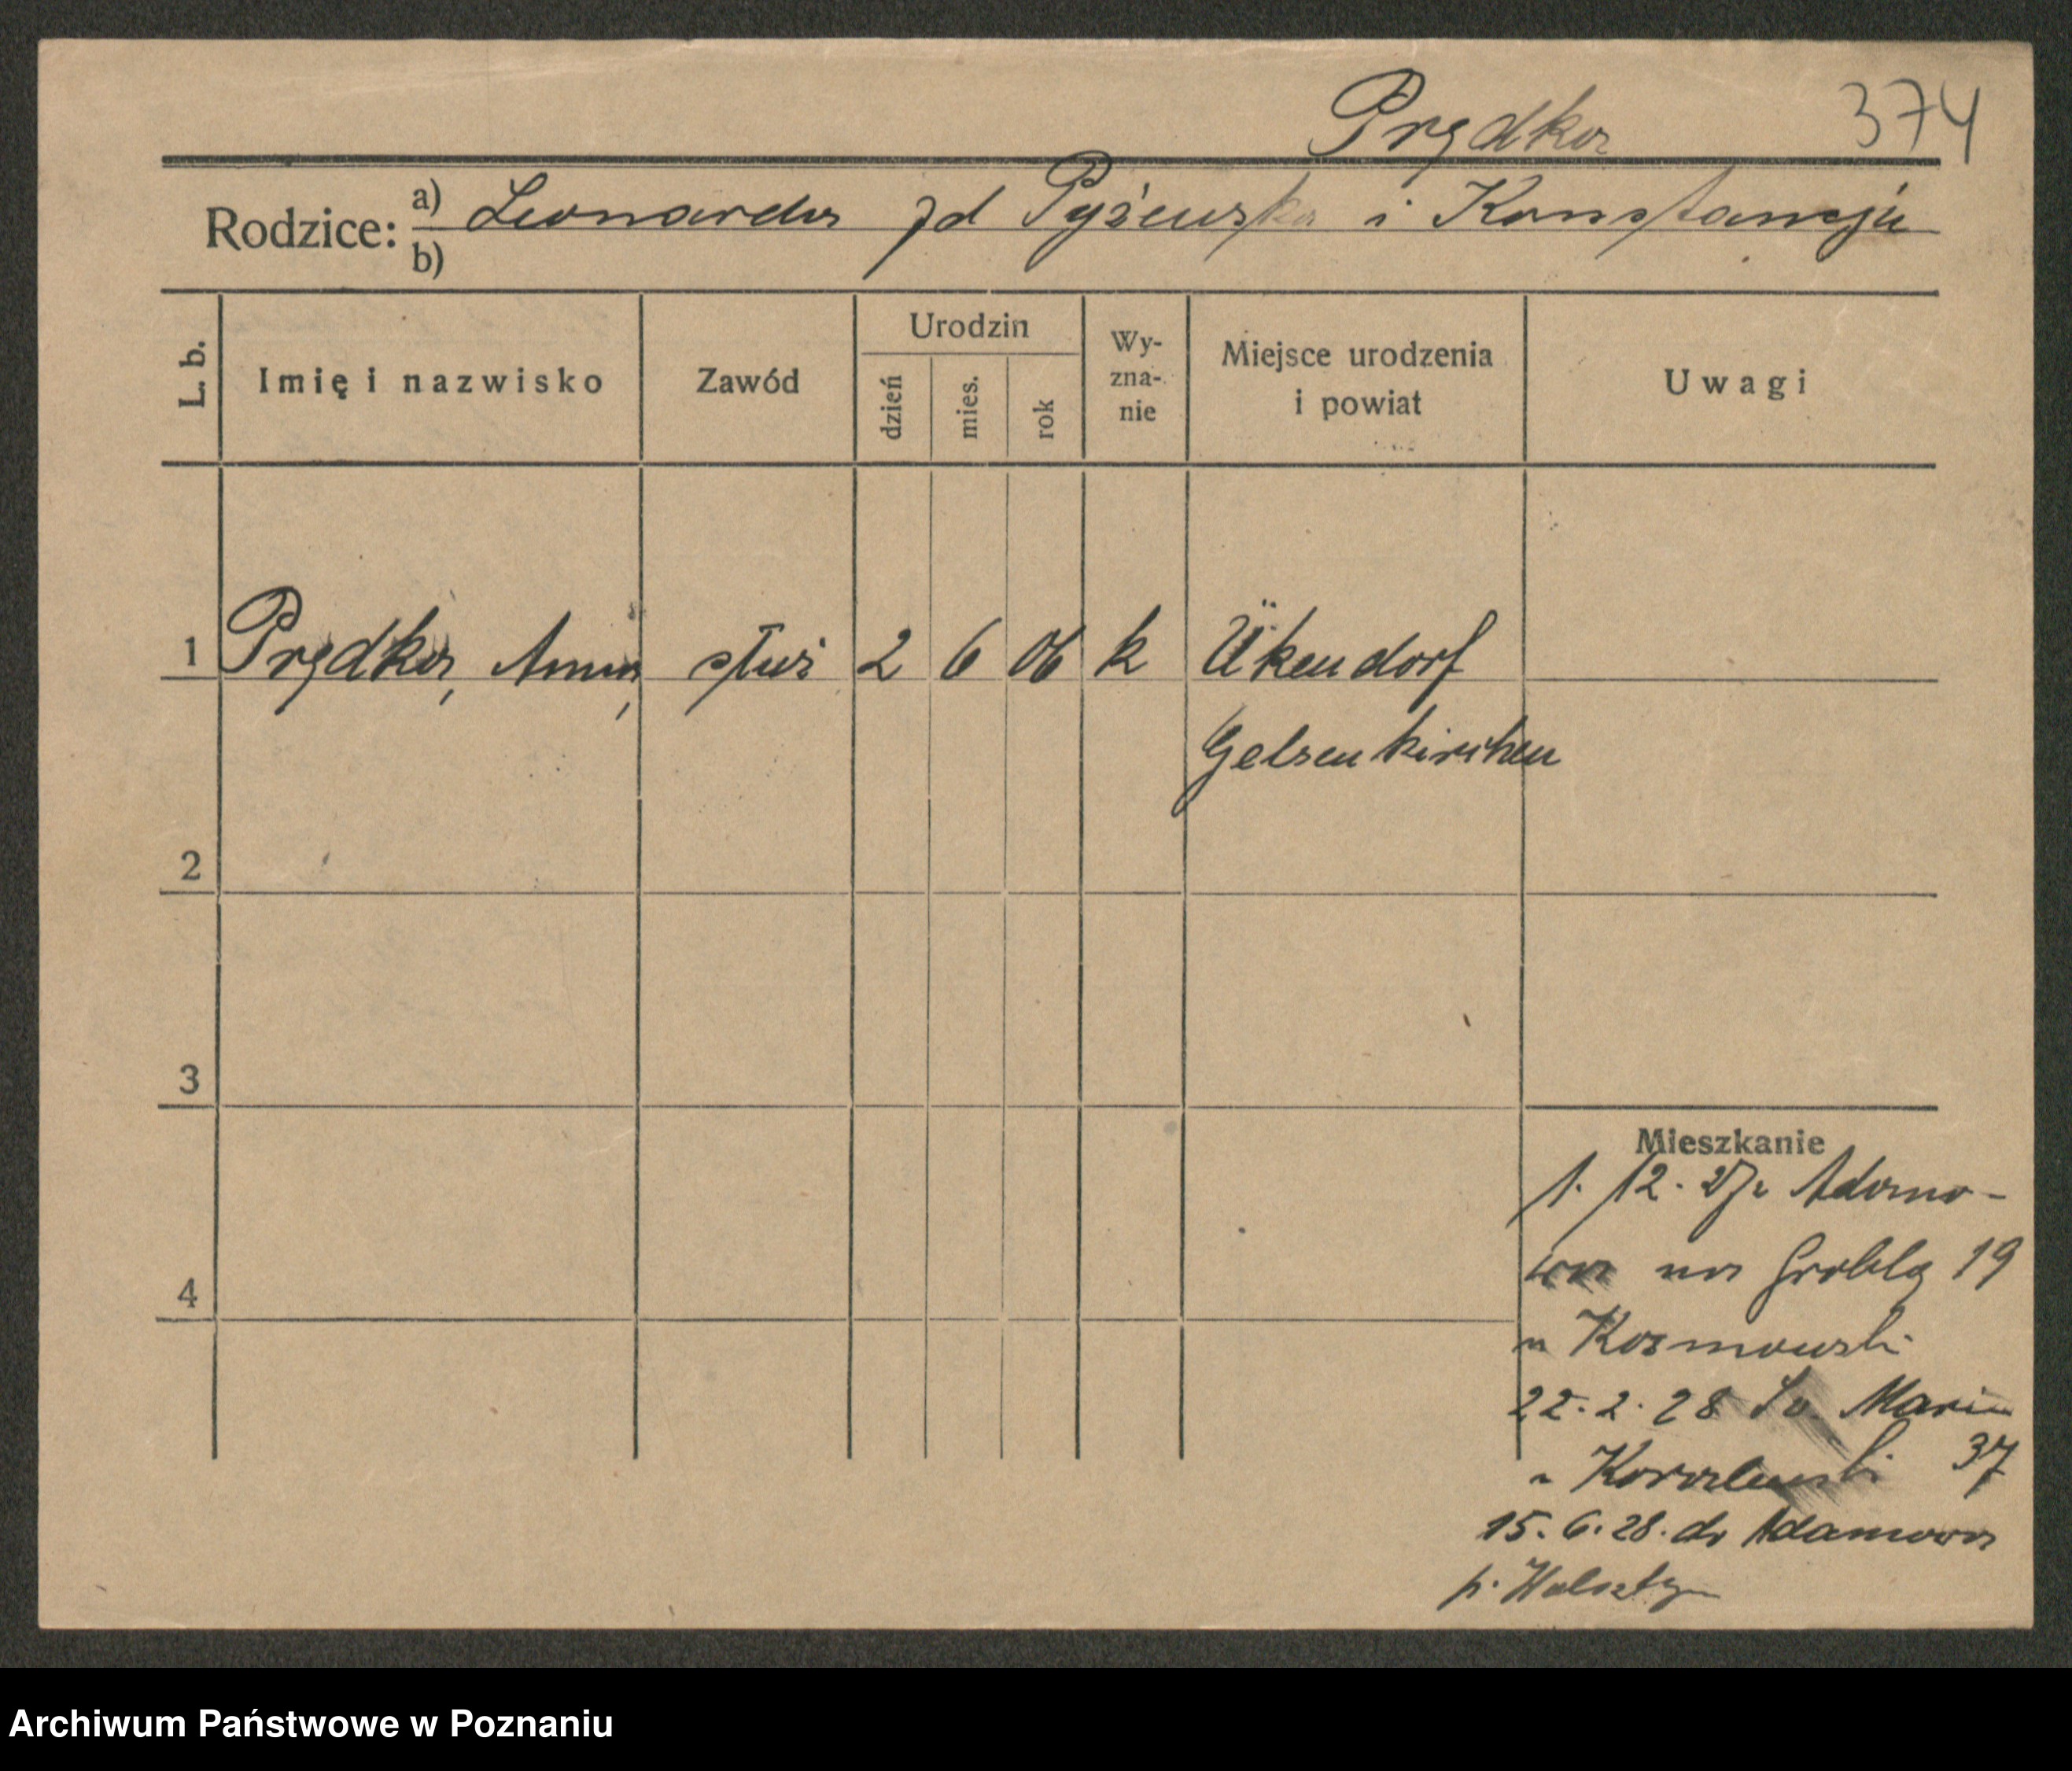 Prędka 374
Rodzice: a) Leonarda zd Pyżewska i Konstancja
b)
L. b. Imię i nazwisko Zawód Urodzin dzień mies. rok Wy-zna-nie Miejsce urodzenia i powiat Uwagi
1 Prędka, Anna, służ 2 6 06 k Ükendorf
Gelsenkirchen
2
3
Mieszkanie
1. 12. 27 Adamo-
wa na Groblą 19
4
u Kosmowski
22. 2. 28 Św. Marcin
37
15. 6. 28. do Adamowa
p. Wolsztyn
Archiwum Państwowe w Poznaniu